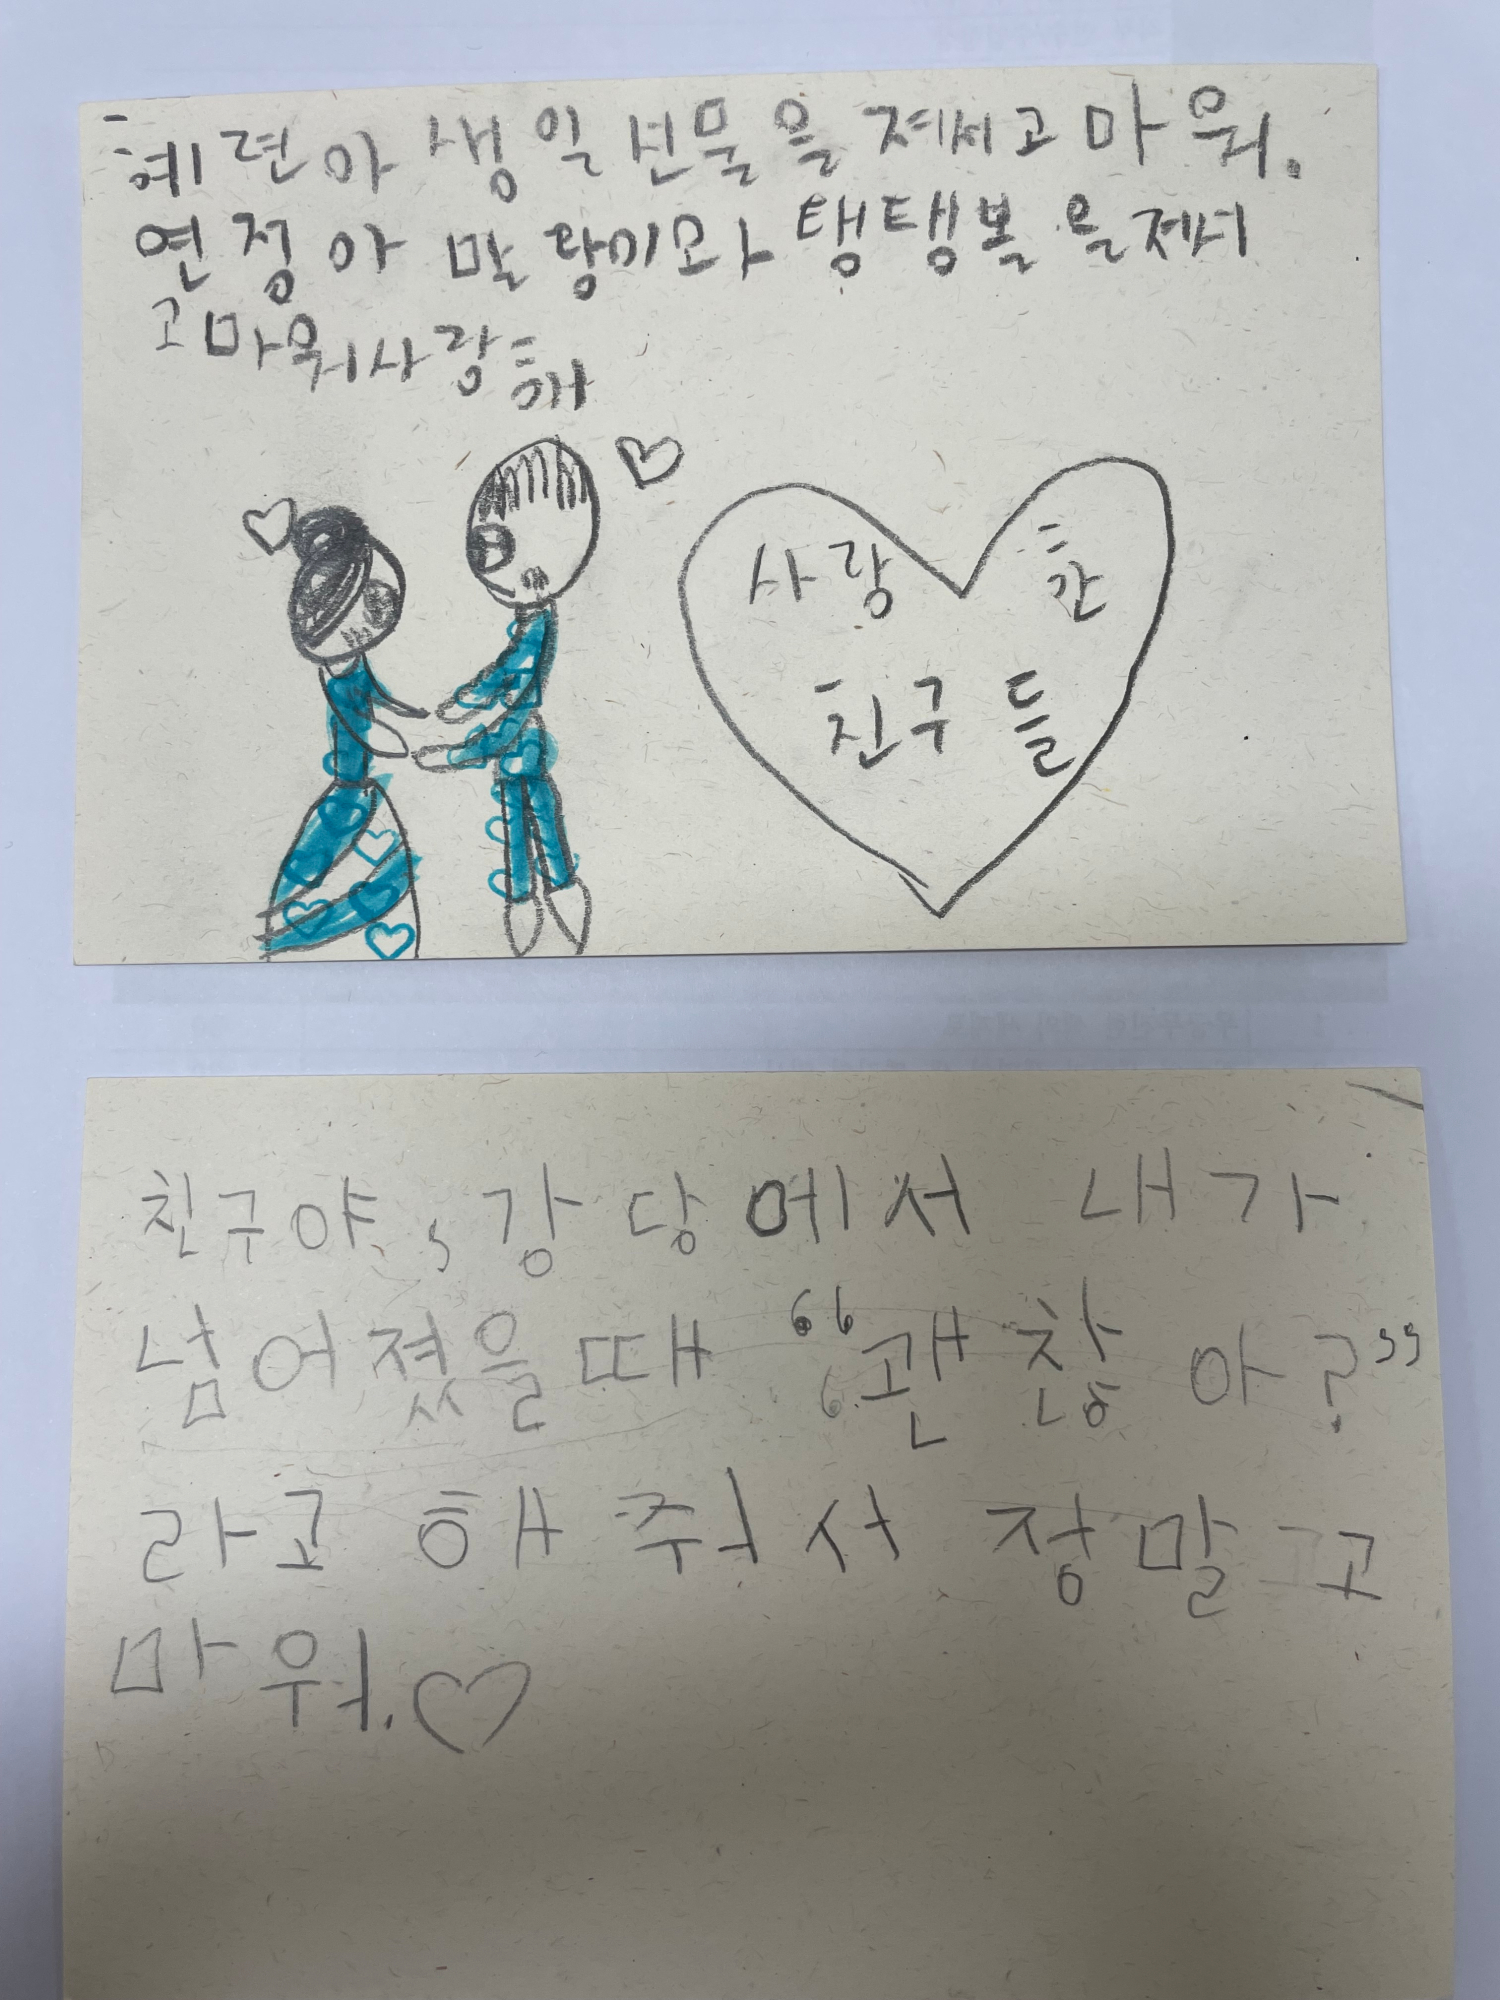 혜련아 생일 선물을 제서 고마워.
연정아 말랑이와 탱탱볼을 제서
고마워 사랑해
사랑한
친구들
친구야, 강당에서 내가
넘어졌을때 “괜찮아?”
라고 해줘서 정말고
마워.♡